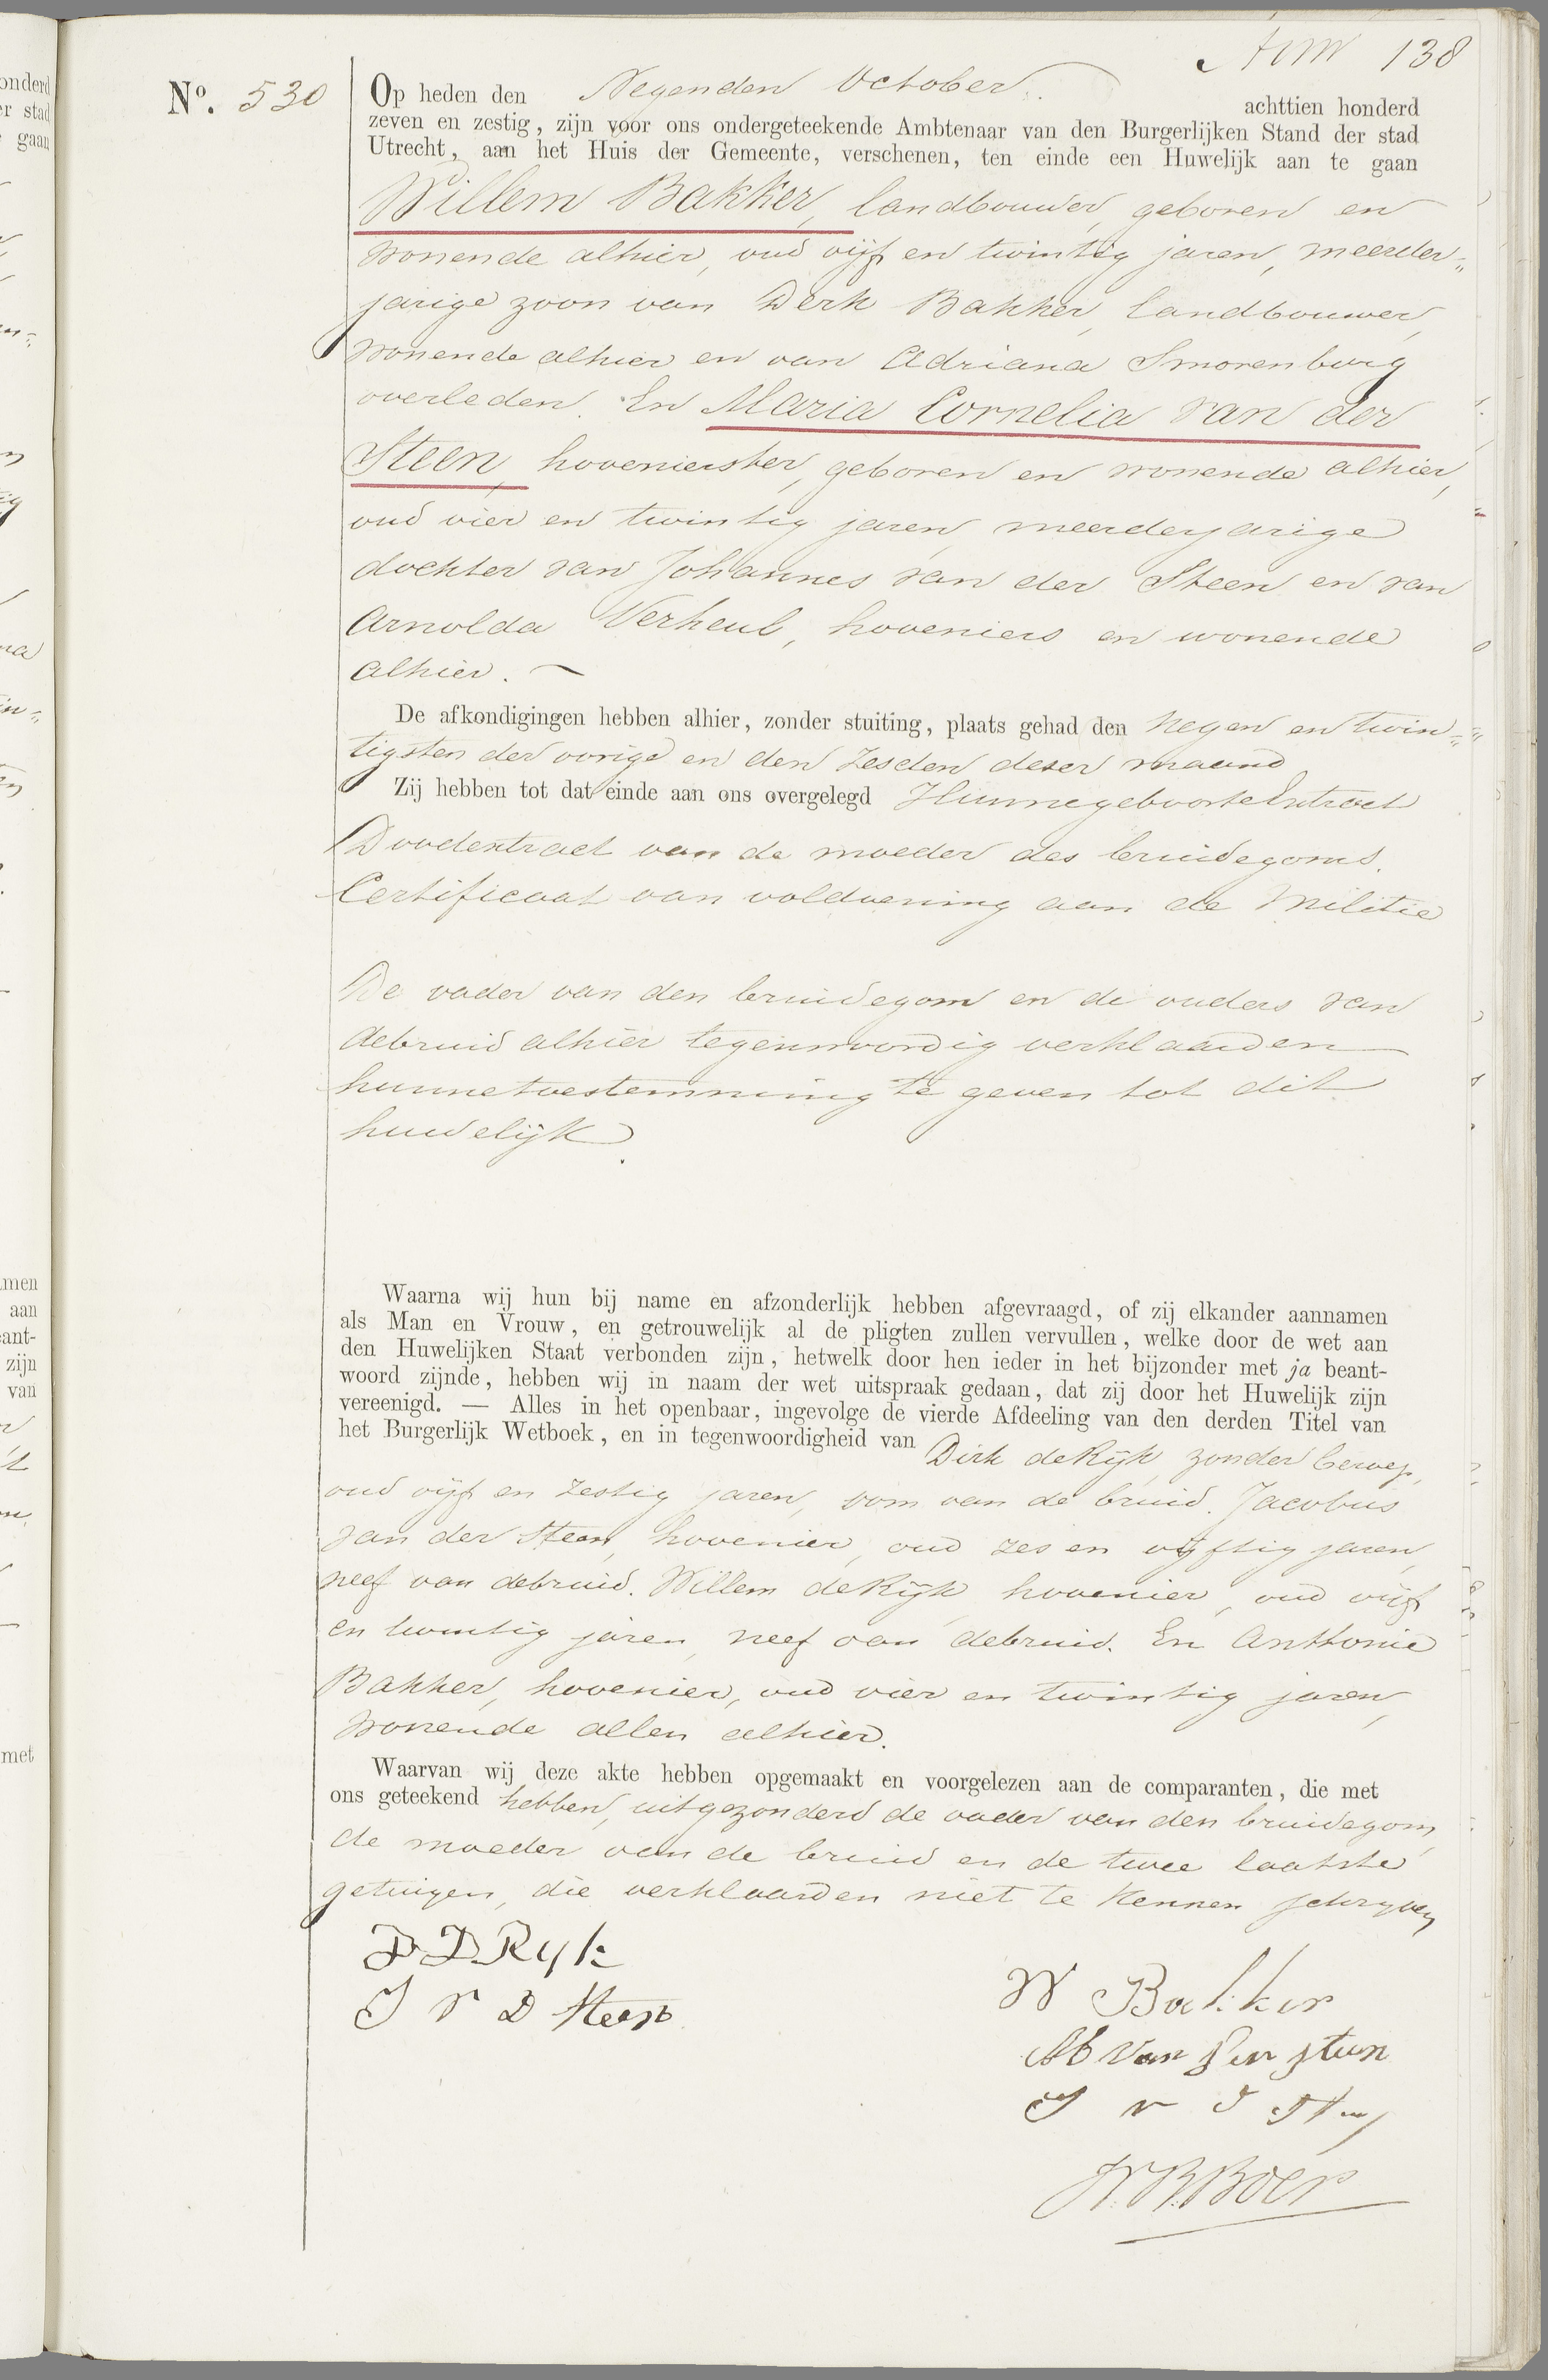 138
No. 530
Op heden den Negenden October achttien honderd
zeven en zestig, zijn voor ons ondergeteekende Ambtenaar van den Burgerlijken Stand der stad
Utrecht, aan het Huis der Gemeente, verschenen, ten einde een Huwelijk aan te gaan
Willem Bakker, landbouwer, geboren en
wonende alhier, oud vijf en twintig jaren, meerder-
jarige zoon van Derk Bakker, landbouwer,
wonende alhier en van Adriana Smorenburg
overleden. En Maria Cornelia van der
Steen, hovenierster, geboren en wonende alhier,
oud vier en twintig jaren meerderjarige
dochter van Johannes van der Steen en van
Arnolda Verheul, hoveniers en wonende
alhier.
De afkondigingen hebben alhier, zonder stuiting, plaats gehad den negen en twin-
tigsten der vorige en den zesden dezer maand
Zij hebben tot dat einde aan ons overgelegd Hunne geboorte Extract
Doodextract van de moeder des bruidegoms.
Certificaat van voldoening aan de Militie
De vader van den bruidegom en de ouders van
de bruid alhier tegenwoordig verklaarden
hunne toestemming te geven tot dit
huwelijk.
Waarna wij hun bij name en afzonderlijk hebben afgevraagd, of zij elkander aannamen
als Man en Vrouw, en getrouwelijk al de pligten zullen vervullen, welke door de wet aan
den Huwelijken Staat verbonden zijn, hetwelk door hen ieder in het bijzonder met ja beant-
woord zijnde, hebben wij in naam der wet uitspraak gedaan, dat zij door het Huwelijk zijn
vereenigd. — Alles in het openbaar, ingevolge de vierde Afdeeling van den derden Titel van
het Burgerlijk Wetboek, en in tegenwoordigheid van Dirk de Rijk, zonder beroep,
oud vijf en zestig jaren, oom van de bruid. Jacobus
van der Steen, hovenier, oud zes en vijftig jaren,
neef van de bruid. Willem de Rijk, hovenier, oud vijf
en twintig jaren neef van de bruid. En Anthonie
Bakker, hovenier, oud vier en twintig jaren,
wonende allen alhier.
Waarvan wij deze akte hebben opgemaakt en voorgelezen aan de comparanten, die met
ons geteekend hebben, uitgezonderd de vader van den bruidegom,
de moeder van de bruid en de twee laatste
getuigen, die verklaarden niet te kennen schryven
D D Ryk
J V D Steen
W Bakker
MC van der steen
J v d
W.R.Boer
onderd
er stad
gaan
men
aan
eant-
zijn
van
met